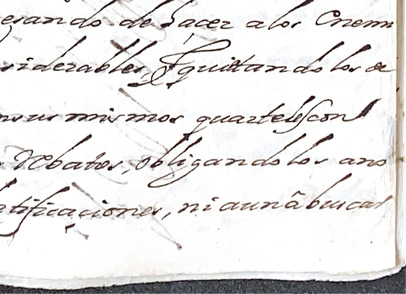 esando de hacer a los Enemi
siderables, quittandolos de
en sus mismos quarteles con
Rebatos, obligandolos a no
atificaciones, ni aun â buscar